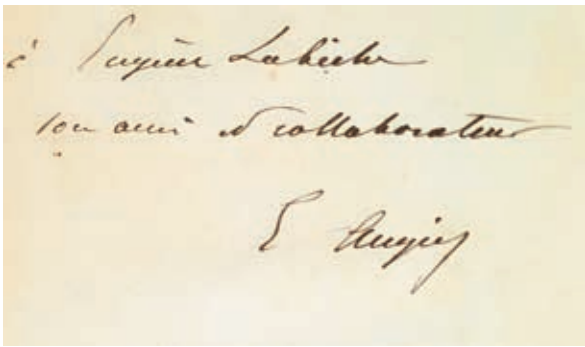 à Eugène Labiche
son ami et collaborateur
E Augier